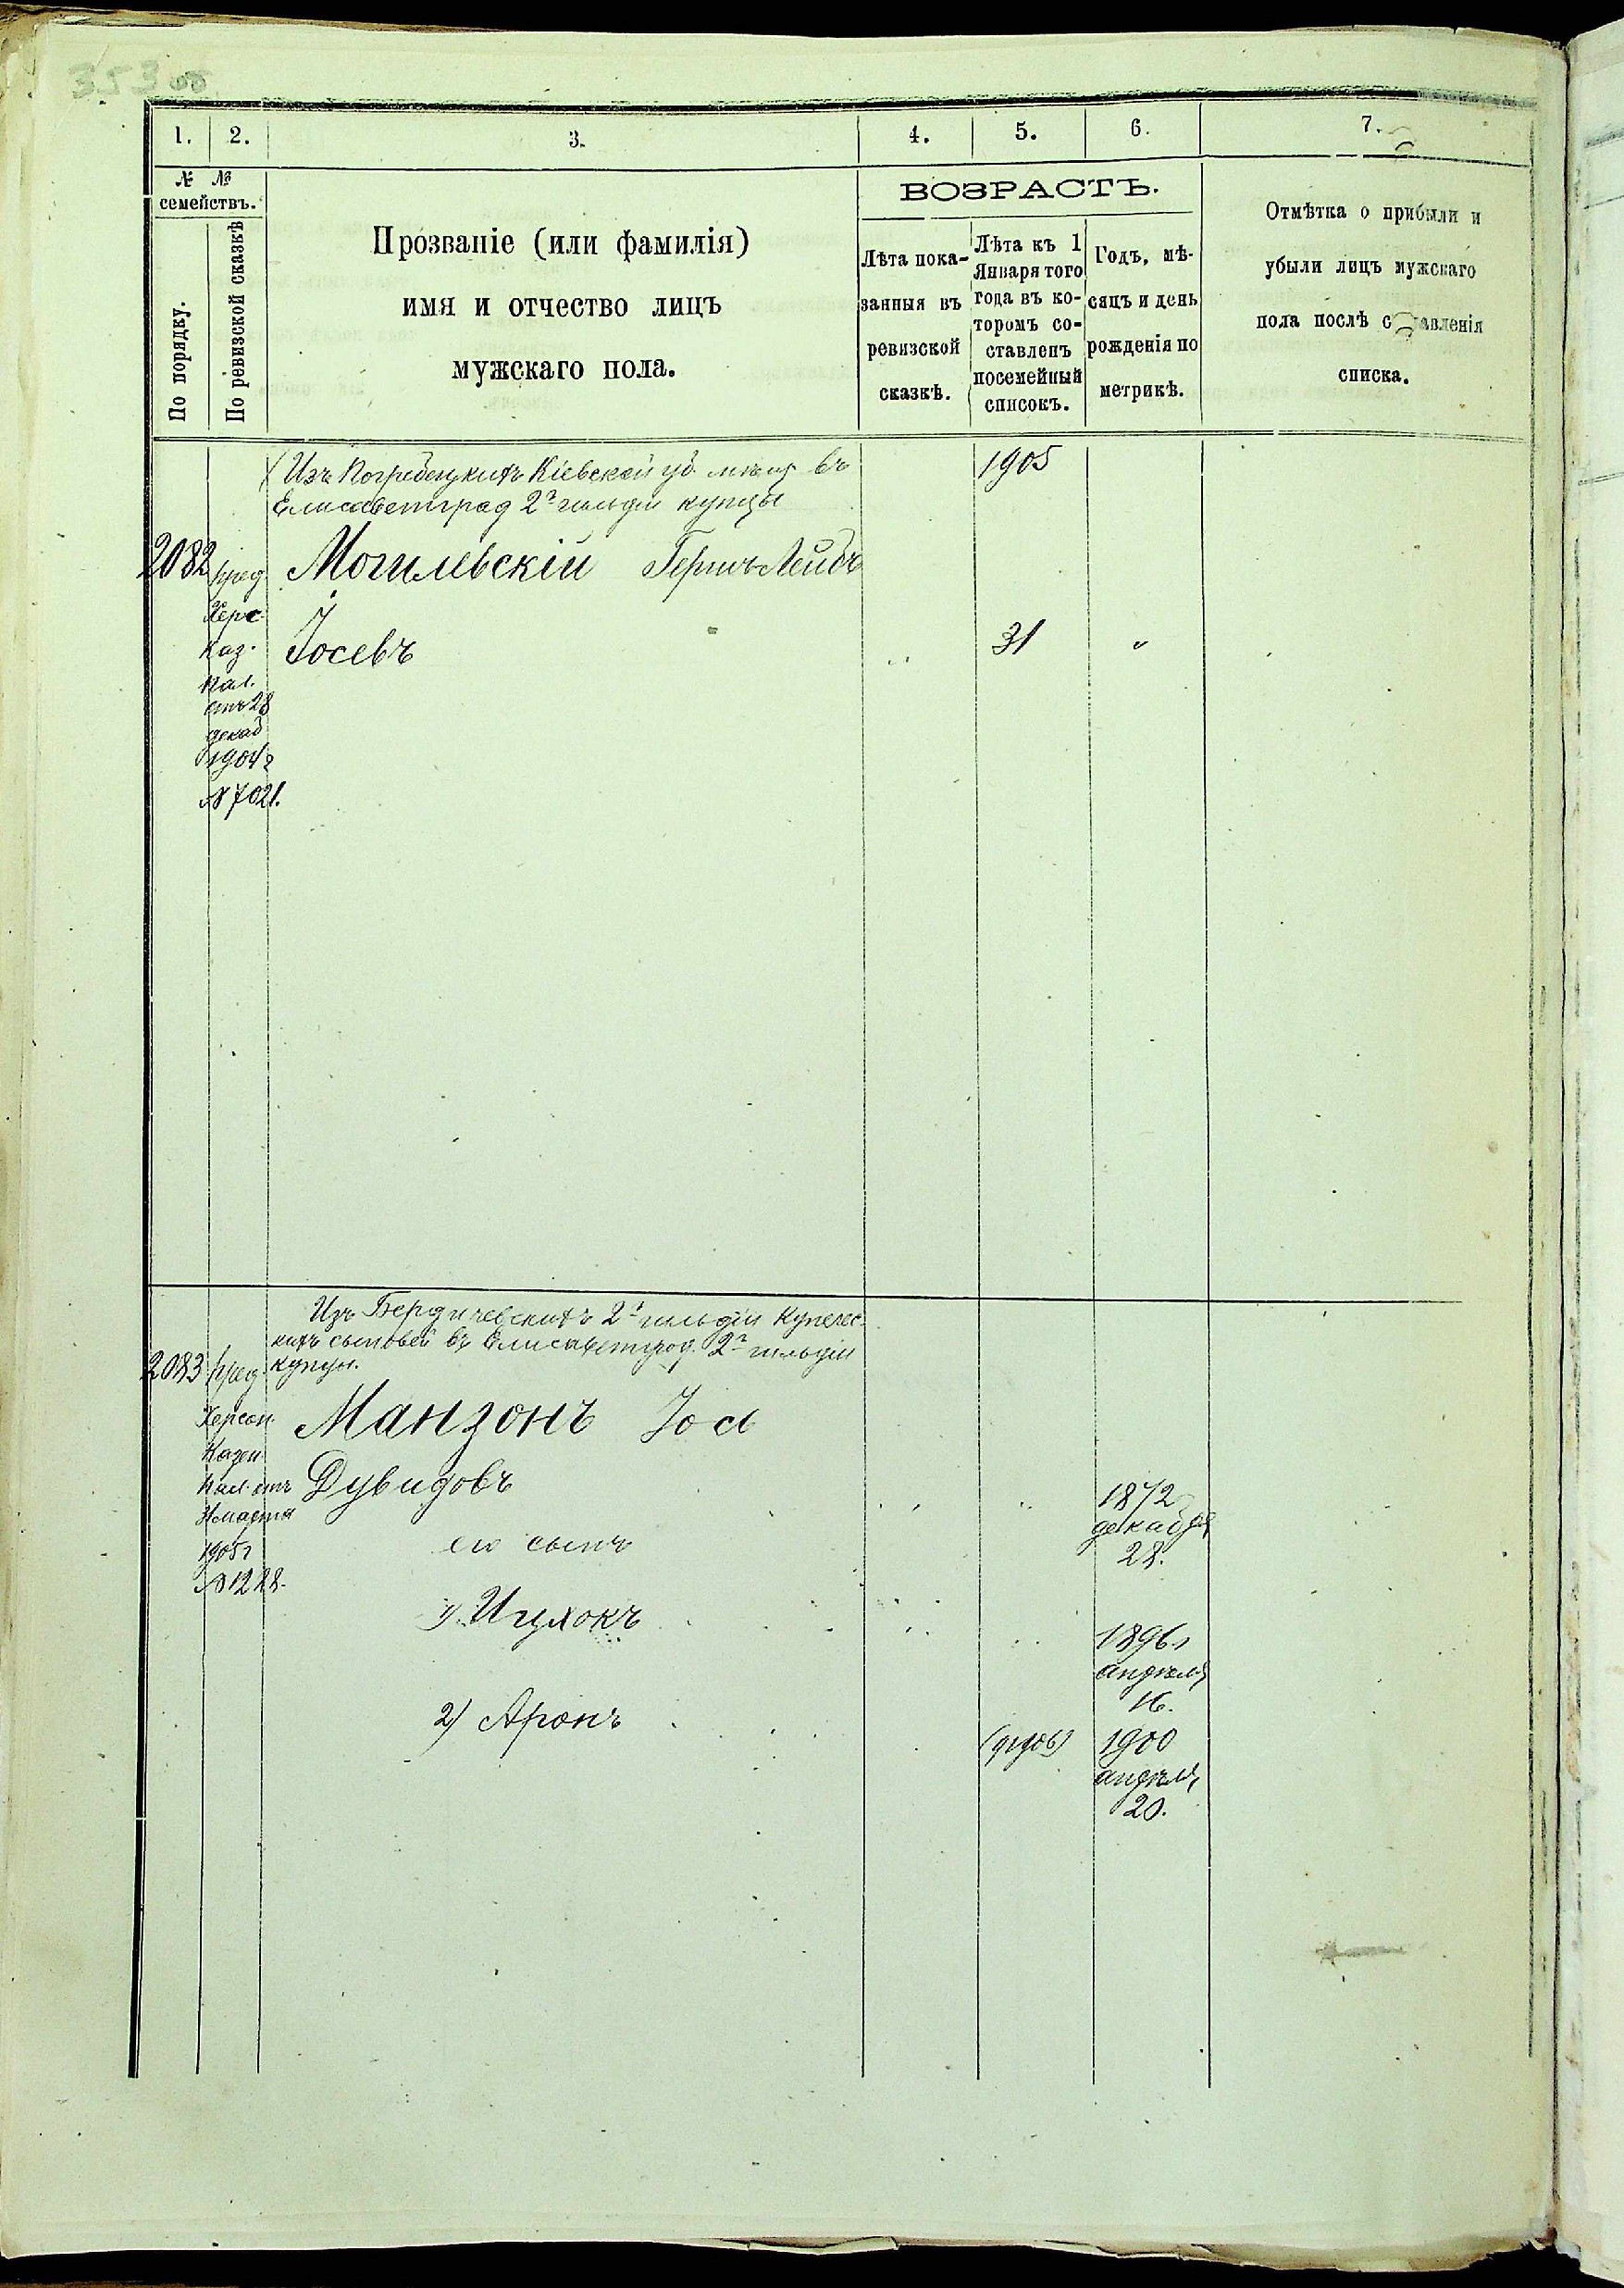 353 об
1. 2. 3. 4. 5. 6. 7.
№ №
семействъ.
По порядку.
По ревизской сказкѣ
Прозваніе (или фамилія)
имя и отчество лицъ
мужскаго пола.
ВОЗРАСТЪ.
Лѣта пока-
занныя въ
ревизской
сказкѣ.
Лѣта къ 1
Января того
года въ ко-
торомъ со-
ставленъ
посемейный
списокъ.
Годъ, мѣ-
сяцъ и день
рожденія по
метрикѣ.
Отмѣтка о прибыли и
убыли лицъ мужскаго
пола послѣ составленія
списка.
Изъ Погребищкихъ Кіевской губ. мѣщ. въ
Елисаветград 2й гильдіи купцы
1905
2082 пред Могилевскій Гершъ Лейбъ
Херс.
Каз.
Пал.
отъ 28
декаб
1904 г
№ 7021.
Іосевъ 31 "
Изъ Бердичевскихъ 2й гильдіи купечес
кихъ сыновей въ Елисаветград. 2й гильдіи
купцы.
2083 пред
Херсон.
Казен
Пал. отъ
марта
1905 г
№ 1228.
Манзонъ Іос
Дувидовъ
1872
декабря
28.
его сынъ
1) Ицхокъ
1896 г
апрѣля
16.
2) Аронъ
1900
апрѣля
20.